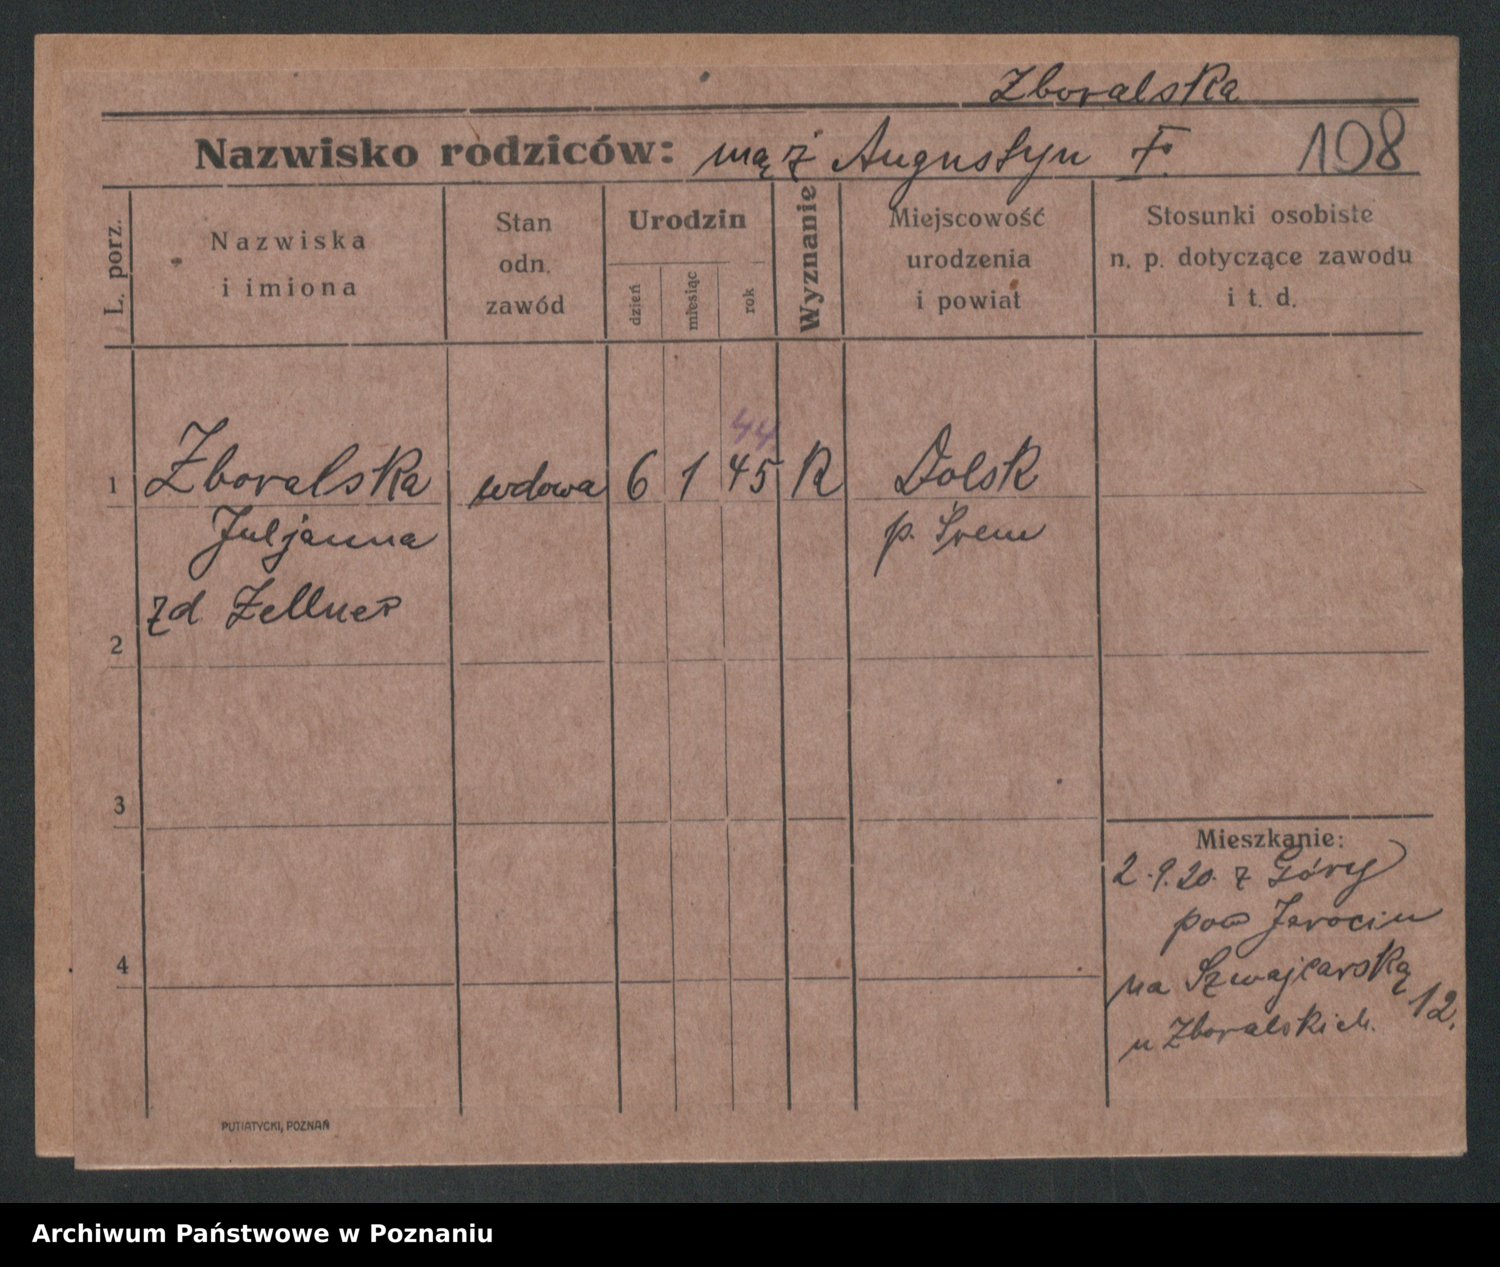 Zboralska
Nazwisko rodziców: mąż Augustyn F. 108
L. porz.
Nazwiska
i imiona
Stan
odn.
zawód
Urodzin
dzień
miesiąc
rok
Wyznanie
Miejscowość
urodzenia
i powiat
Stosunki osobiste
n. p. dotyczące zawodu
i t. d.
44
1 Zboralska wdowa 6 1 45 R Dolsk
Juljanna p. Śrem
zd Zellner
2
3
Mieszkanie:
2.9.20. z Góry
pow Jarocin
4
na Szwajcarską 12.
u Zboralskich.
PUTIATYCKI, POZNAŃ
Archiwum Państwowe w Poznaniu